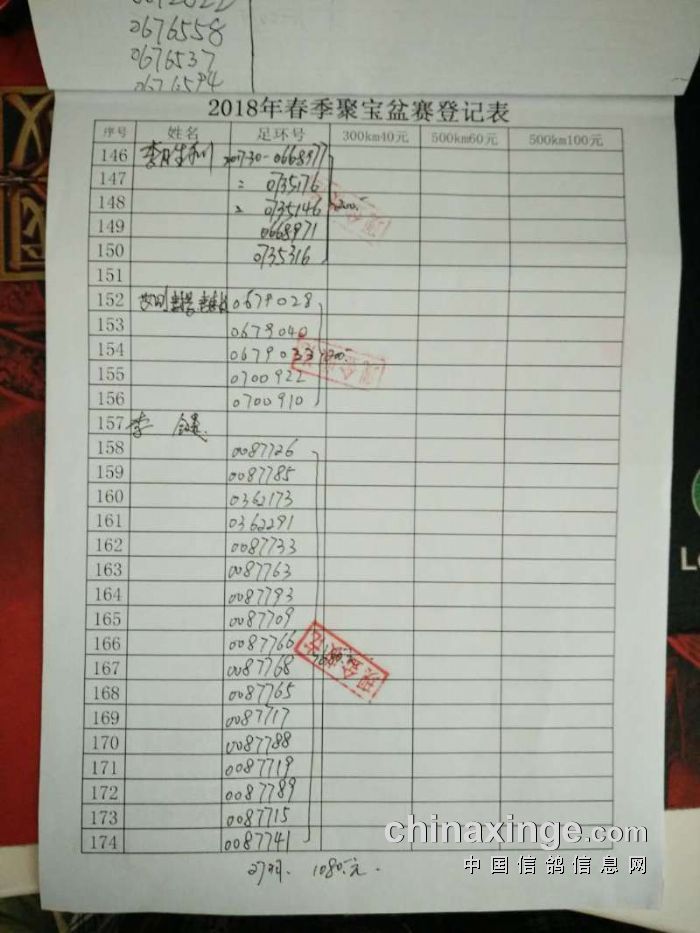 0676558
0676537
0676594
2018年春季聚宝盆赛登记表
序号 姓名 足环号 300km40元 500km60元 500km100元
146 2017-30-0668977
147 = 0735176
148 = 0735146 200.-
149 0668971
150 0735316
151
152 0679028
153 0679040
154 0679033 200.-
155 0700922
156 0700910
157 李
158 0087726
159 0087785
160 0362173
161 0362291
162 0087733
163 0087763
164 0087793
165 0087709
166 0087766
167 0087768
168 0087765
169 0087717
170 0087788
171 0087719
172 0087789
173 0087715
174 0087741
27羽. 1080.元.
现金收讫
chinaxinge.com
中国信鸽信息网